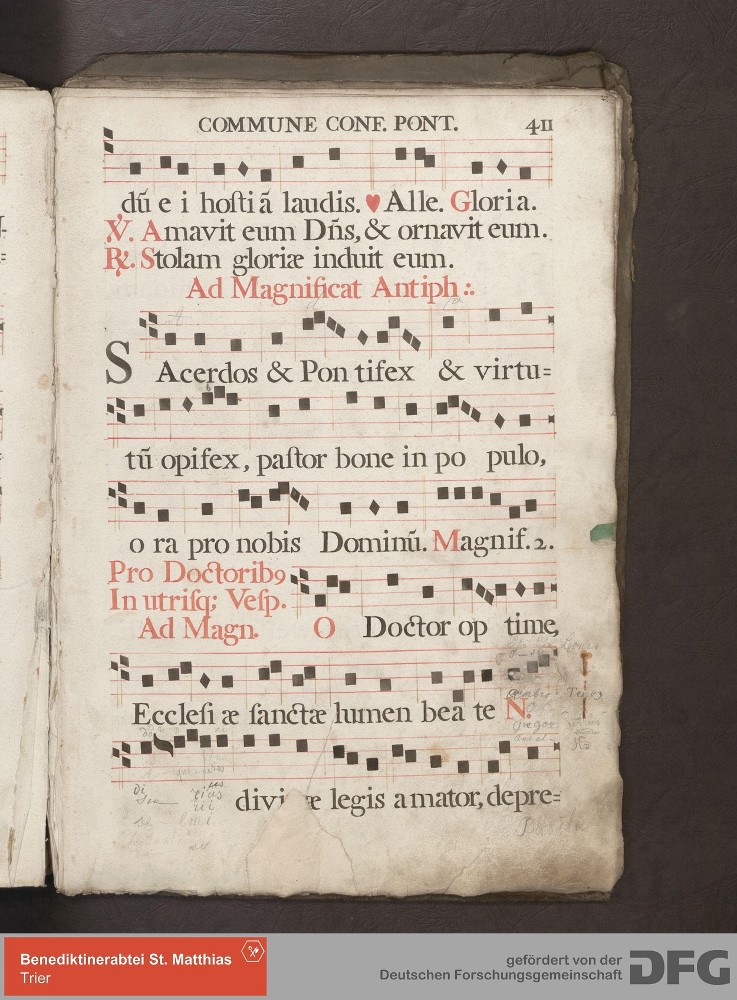 COMMUNE CONF. PONT. 411
dũ e i hoſti ã laudis. ♥ Alle. Gloria.
℣. Amavit eum Dñs, & ornavit eum.
℟. Stolam gloriæ induit eum.
Ad Magnificat Antiph ∴
SAcerdos & Pon tifex & virtu=
tũ opifex, paſtor bone in po pulo,
o ra pro nobis Dominũ. Magnif. 2.
Pro Doctorib9
In utriſq; Veſp.
Ad Magn. O Doctor op time,
Eccleſi æ ſanctæ lumen bea te N.
legis amator, depre=
Benediktinerabtei St. Matthias
Trier
gefördert von der
Deutschen Forschungsgemeinschaft
DFG